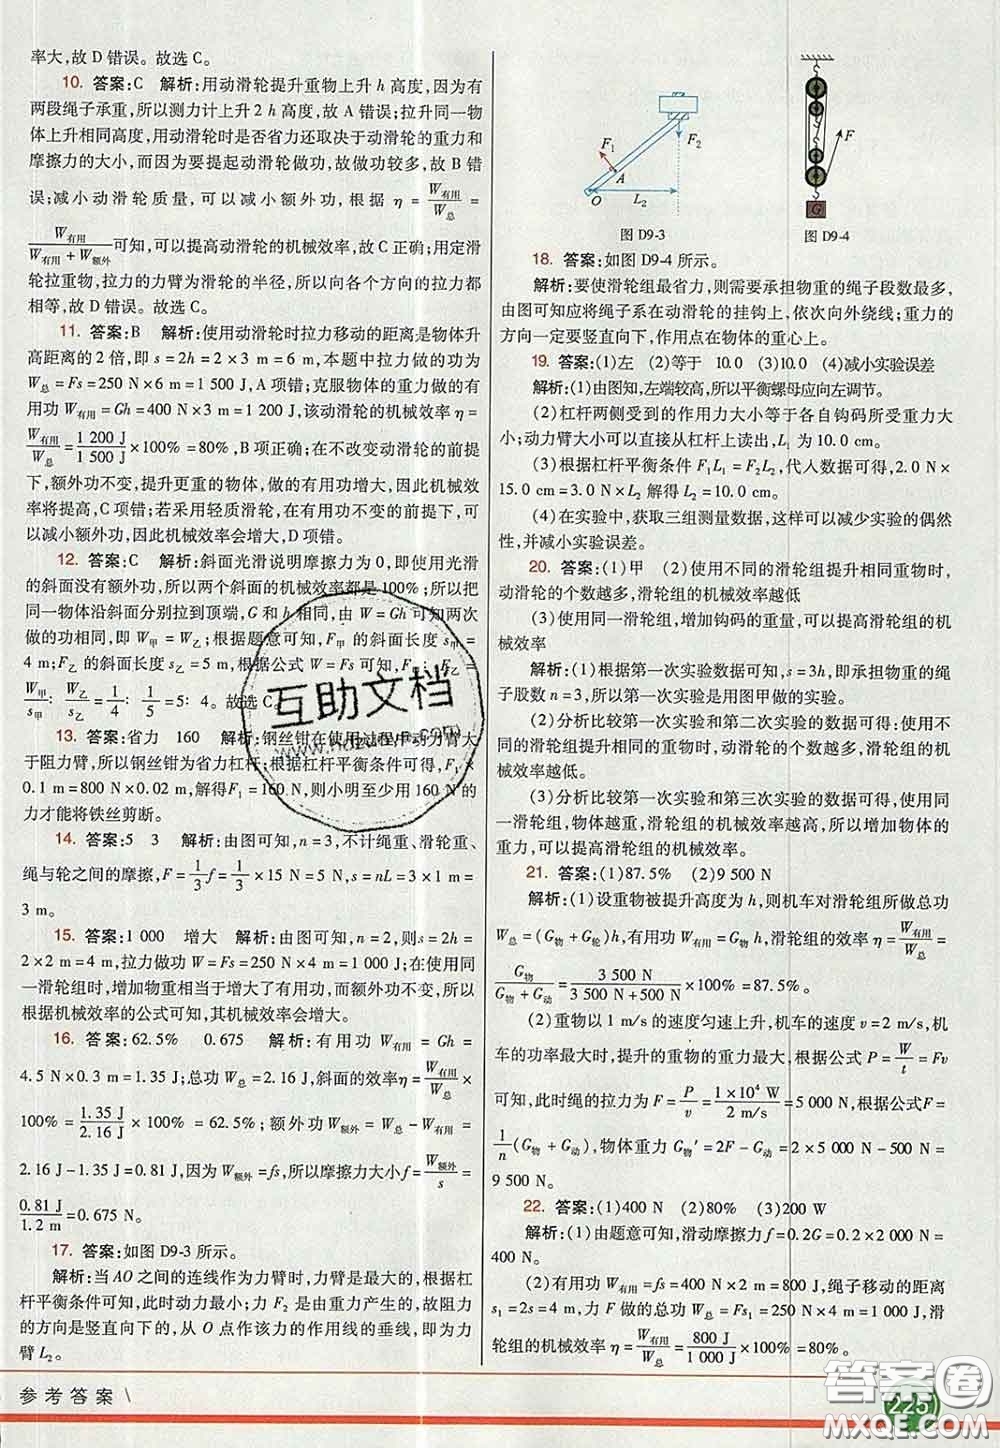 率大,故 D 错误。故选 C。
10. 答案:C 解析:用动滑轮提升重物上升 h 高度,因为有
两段绳子承重,所以测力计上升 2 h 高度,故 A 错误;拉升同一物
体上升相同高度,用动滑轮时是否省力还取决于动滑轮的重力和
摩擦力的大小,而因为要提起动滑轮做功,故做功较多,故 B 错
误;减小动滑轮质量,可以减小额外功,根据 η = W有用/W总 =
W有用/(W有用 + W额外) 可知,可以提高动滑轮的机械效率,故 C 正确;用定滑
轮拉重物,拉力的力臂为滑轮的半径,所以各个方向的拉力都
相等,故 D 错误。故选 C。
11. 答案:B 解析:使用动滑轮时拉力移动的距离是物体升
高距离的 2 倍,即 s = 2h = 2 × 3 m = 6 m,本题中拉力做的功为
W总 = Fs = 250 N × 6 m = 1 500 J,A 项错;克服物体的重力做的有
用功 W有用 = Gh = 400 N × 3 m = 1 200 J,该动滑轮的机械效率 η =
W有用/W总 = 1 200 J/1 500 J × 100% = 80%,B 项正确;在不改变动滑轮的前提
下,额外功不变,提升更重的物体,做的有用功增大,因此机械效
率将提高,C 项错;若采用轻质滑轮,在有用功不变的前提下,可
以减小额外功,因此机械效率会增大,D 项错。
12. 答案:C 解析:斜面光滑说明摩擦力为 0,即使用光滑
的斜面没有额外功,所以两个斜面的机械效率都是 100%;所以把
同一物体沿斜面分别拉到顶端,G 和 h 相同,由 W = Gh 可知两次
做的功相同,即 W甲 = W乙;根据题意可知,F甲 的斜面长度 s甲 =
4 m;F乙 斜面长度 s乙 = 5 m,根据公式 W = Fs 可知,F甲∶F乙 =
W甲/s甲∶W乙/s乙 = 1/4∶1/5 = 5∶4。故选 C。
13. 答案:省力 160 解析:钢丝钳在使用过程中动力臂大
于阻力臂,所以钢丝钳为省力杠杆;根据杠杆平衡条件可得,F1 ×
0.1 m = 800 N × 0.02 m,解得F1 = 160 N,则小明至少用 160 N 的
力才能将铁丝剪断。
14. 答案:5 3 解析:由图可知,n = 3,不计绳重、滑轮重、
绳与轮之间的摩擦,F = 1/3 f = 1/3 × 15 N = 5 N,s = nL = 3 × 1 m =
3 m。
15. 答案:1 000 增大 解析:由图可知,n = 2,则s = 2h =
2 × 2 m = 4 m,拉力做功 W = Fs = 250 N × 4 m = 1 000 J;在使用同
一滑轮组时,增加物重相当于增大了有用功,而额外功不变,所以
根据机械效率的公式可知,其机械效率会增大。
16. 答案:62.5% 0.675 解析:有用功 W有用 = Gh =
4.5 N × 0.3 m = 1.35 J;总功 W总 = 2.16 J,斜面的效率η = W有用/W总 ×
100% = 1.35 J/2.16 J × 100% = 62.5%;额外功 W额外 = W总 − W有用 =
2.16 J − 1.35 J = 0.81 J,因为 W额外 = fs,所以摩擦力大小f = W额外/s =
0.81 J/1.2 m = 0.675 N。
17. 答案:如图 D9-3 所示。
解析:当 AO 之间的连线作为力臂时,力臂是最大的,根据杠
杆平衡条件可知,此时动力最小;力 F2 是由重力产生的,故阻力
的方向是竖直向下的,从 O 点作该力的作用线的垂线,即为力
臂 L2。
F1
A
O
L2
F2
图 D9-3
F
G
图 D9-4
18. 答案:如图 D9-4 所示。
解析:要使滑轮组最省力,则需要承担物重的绳子段数最多,
由图可知应将绳子系在动滑轮的挂钩上,依次向外绕线;重力的
方向一定要竖直向下,作用点在物体的重心上。
19. 答案:(1)左 (2)等于 10.0 (3)10.0 (4)减小实验误差
解析:(1)由图知,左端较高,所以平衡螺母应向左调节。
(2)杠杆两侧受到的作用力大小等于各自钩码所受重力大
小;动力臂大小可以直接从杠杆上读出,L1 为 10.0 cm。
(3)根据杠杆平衡条件 F1L1 = F2L2,代入数据可得,2.0 N ×
15.0 cm = 3.0 N × L2 解得 L2 = 10.0 cm。
(4)在实验中,获取三组测量数据,这样可以减少实验的偶然
性,并减小实验误差。
20. 答案:(1)甲 (2)使用不同的滑轮组提升相同重物时,
动滑轮的个数越多,滑轮组的机械效率越低
(3)使用同一滑轮组,增加钩码的重量,可以提高滑轮组的机
械效率
解析:(1)根据第一次实验数据可知,s = 3h,即承担重物的绳
子股数 n = 3,所以第一次实验是用图甲做的实验。
(2)分析比较第一次实验和第二次实验的数据可得:使用不
同的滑轮组提升相同的重物时,动滑轮的个数越多,滑轮组的机
械效率越低。
(3)分析比较第一次实验和第三次实验的数据可得:使用同
一滑轮组,物体越重,滑轮组的机械效率越高,所以增加物体的
重力,可以提高滑轮组的机械效率。
21. 答案:(1)87.5% (2)9 500 N
解析:(1)设重物被提升高度为 h,则机车对滑轮组所做总功
W总 = (G物 + G轮)h,有用功 W有用 = G物 h,滑轮组的效率 η = W有用/W总 =
G物/(G物 + G动) = 3 500 N/(3 500 N + 500 N) × 100% = 87.5%。
(2)重物以 1 m/s 的速度匀速上升,机车的速度 v = 2 m/s,机
车的功率最大时,提升的重物的重力最大,根据公式 P = W/t = Fv
可知,此时绳的拉力为 F = P/v = 1 × 10⁴ W/2 m/s = 5 000 N,根据公式F =
1/n (G物 + G动),物体重力 G物′ = 2F − G动 = 2 × 5 000 N − 500 N =
9 500 N。
22. 答案:(1)400 N (2)80% (3)200 W
解析:(1)由题意可知,滑动摩擦力 f = 0.2G = 0.2 × 2 000 N =
400 N。
(2)有用功 W有用 = fs = 400 N × 2 m = 800 J,绳子移动的距离
s1 = 2s = 4 m,力 F 做的总功 W总 = Fs1 = 250 N × 4 m = 1 000 J,滑
轮组的机械效率 η = W有用/W总 = 800 J/1 000 J × 100% = 80%。
参考答案 \
225
互助文档
答案圈
MXQE.COM